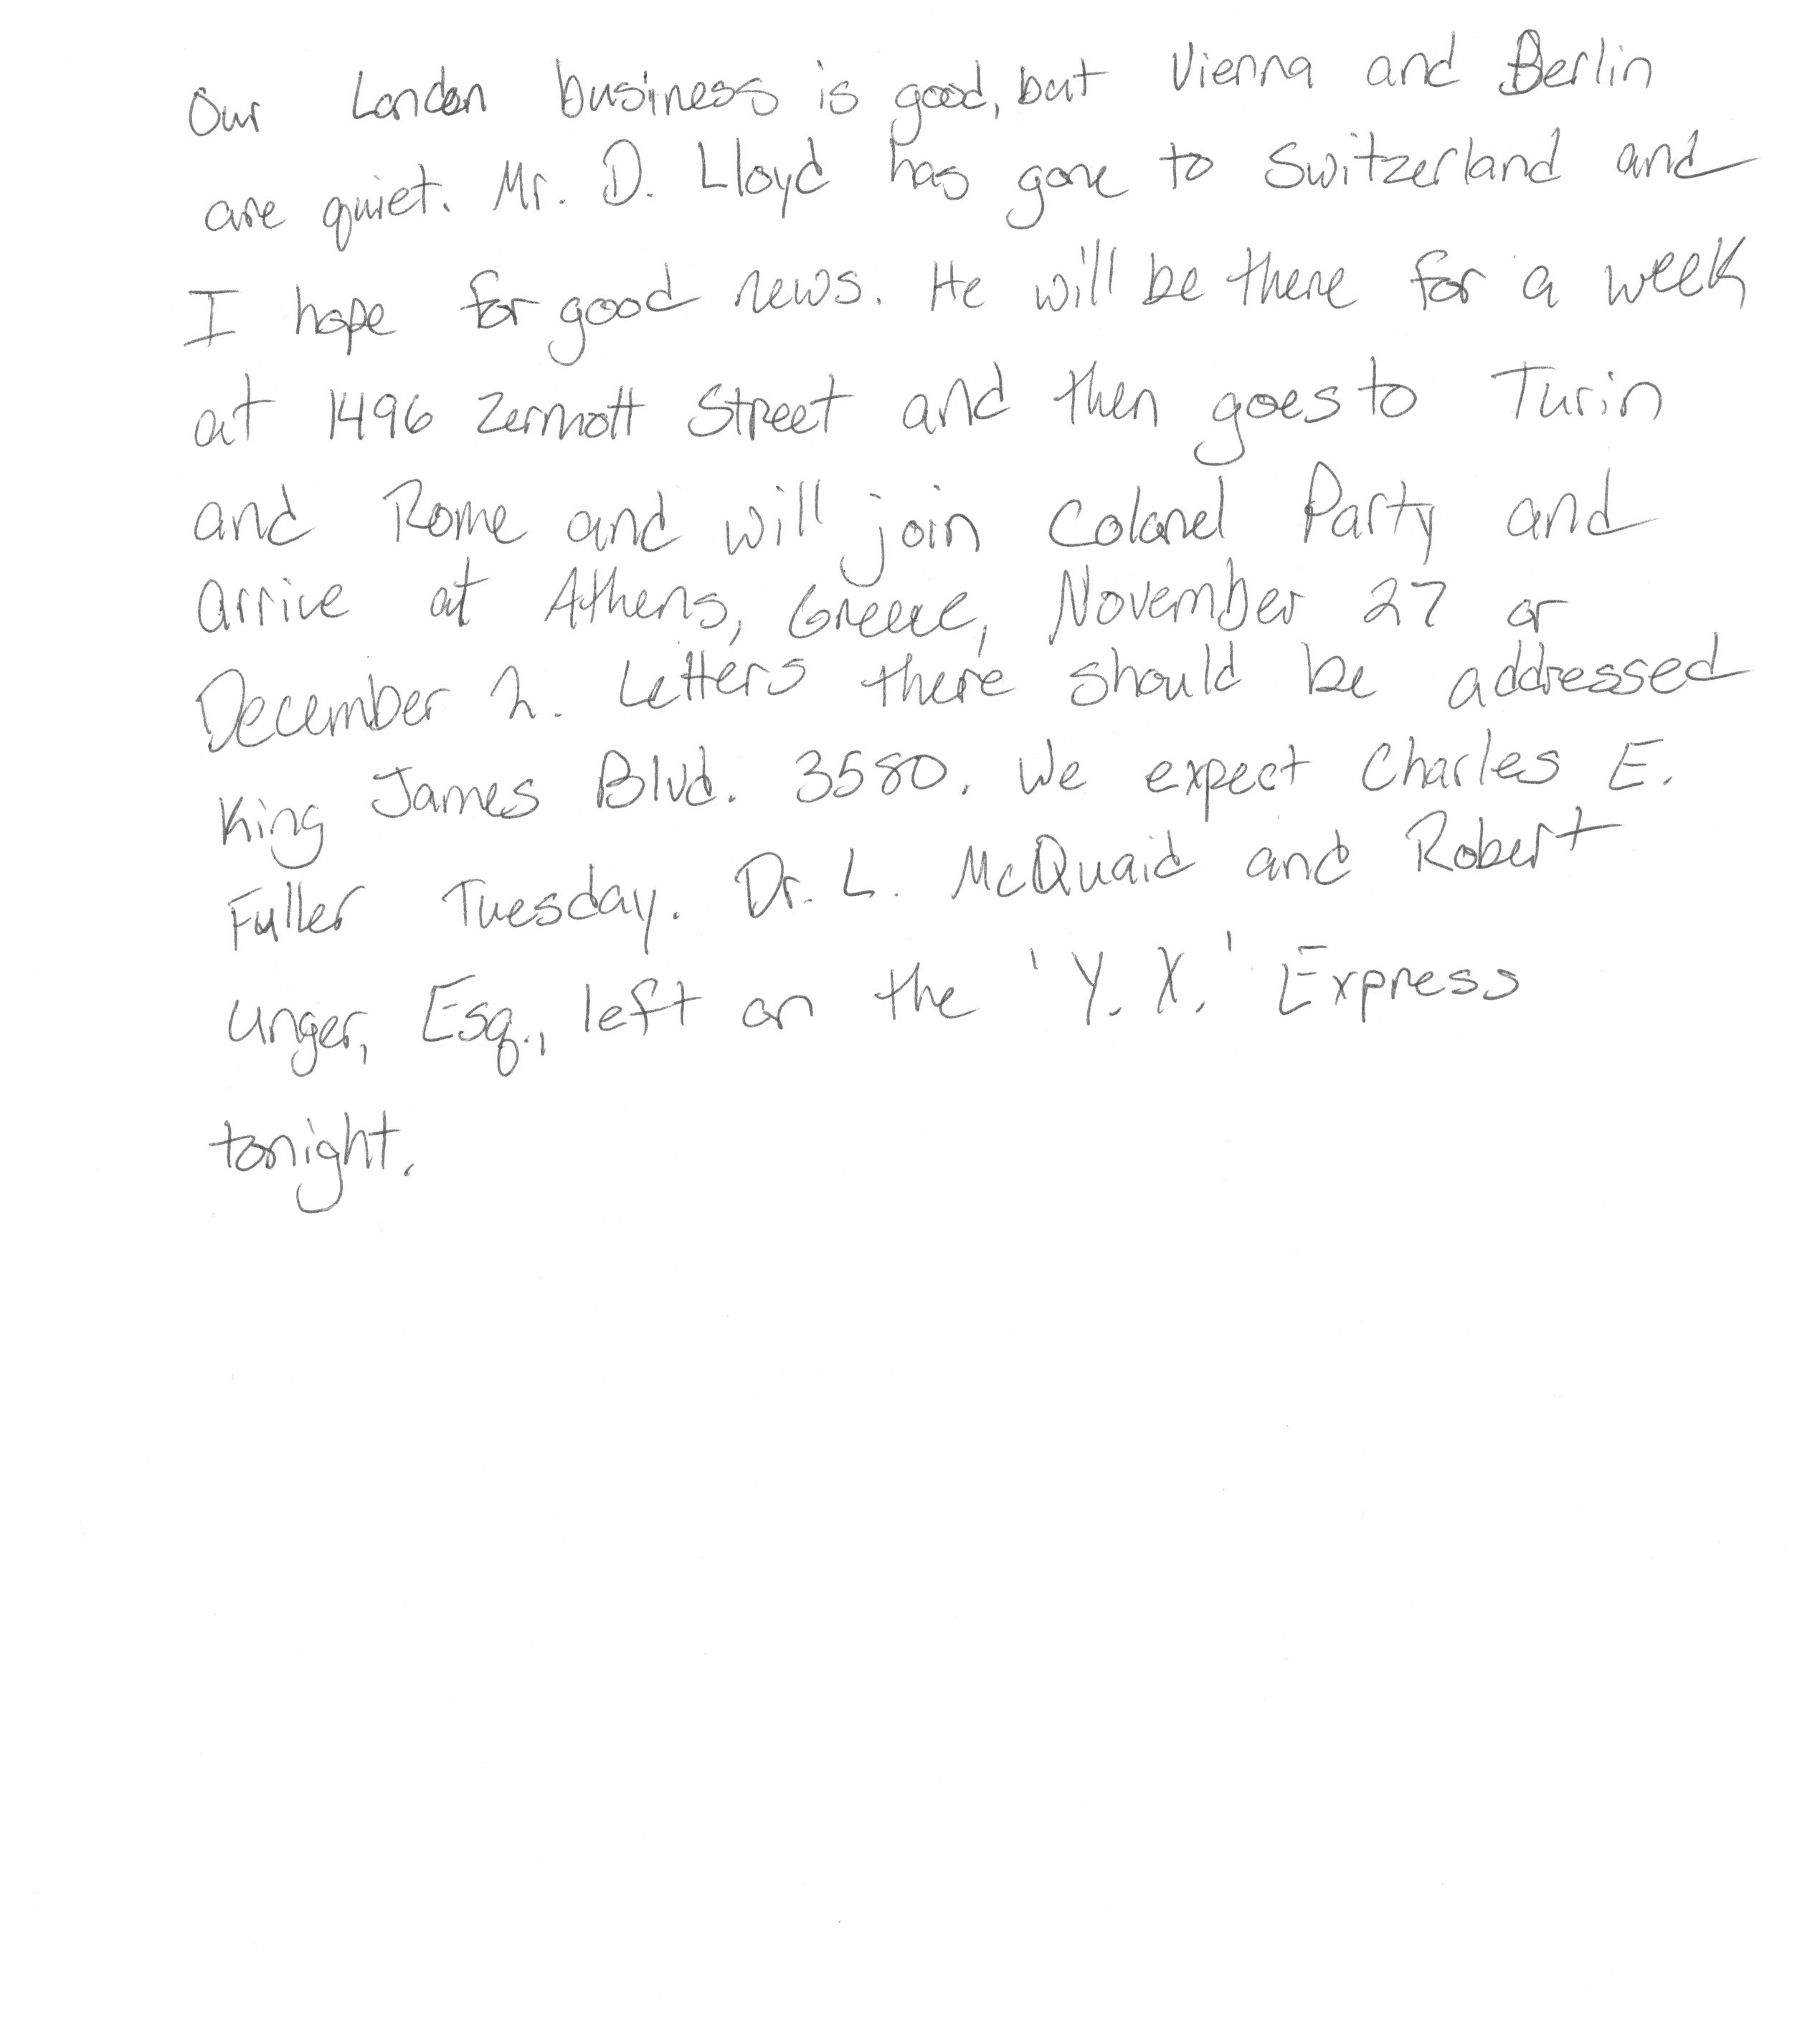 Our London business is good, but Vienna and Berlin
are quiet. Mr. D. Lloyd has gone to Switzerland and
I hope for good news. He will be there for a week
at 1496 Zermott Street and then goes to Turin
and Rome and will join Colonel Party and
arrive at Athens, Greece, November 27 or
December 2. Letters there should be addressed
King James Blvd. 3580. We expect Charles E.
Fuller Tuesday. Dr. L. McQuaid and Robert
Unger, Esq., left on the 'Y. X.' Express
tonight.